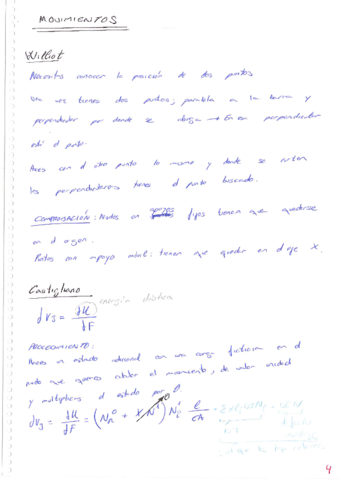 MOVIMIENTOS
Williot
Necesitas conocer la posición de dos puntos
Una vez tienes dos puntos, paralela a la barra y
perpendicular por donde se alarga → En esa perpendicular
está el punto.
Haces con el otro punto lo mismo y donde se corten
las perpendiculares tienes el punto buscado.
COMPROBACIÓN: Nudos en apoyos fijos tienen que quedarse
en el origen.
Puntos con apoyo móvil: tienen que quedar en el eje X.
Castigliano
energía elástica
dVj = dU/dF
PROCEDIMIENTO:
Haces un estado adicional con una carga ficticia en el
nudo que quieres calcular el movimiento, de valor unidad
y multiplicas el estado por
dVj = dU/dF = (N⁰ + X N¹) N¹ l/EA
4